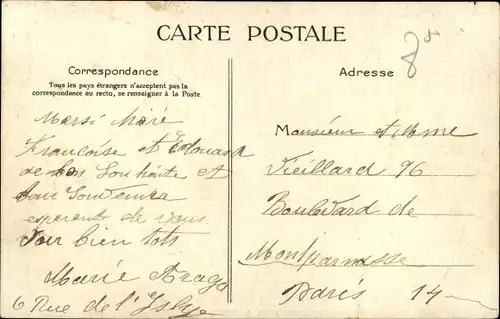 CARTE POSTALE
Correspondance
Tous les pays étrangers n'acceptent pas la
correspondance au recto, se renseigner à la Poste
Adresse
Mersi Moré
Françoise et Edouard
de Bon Souhaite et
bon Souvenir
esperent de vous
voir bien tots
Marie Arago
6 Rue de l'Isly
Monsieur et Mme
Vieillard 96
Boulvard de
Montparnasse
Paris 14